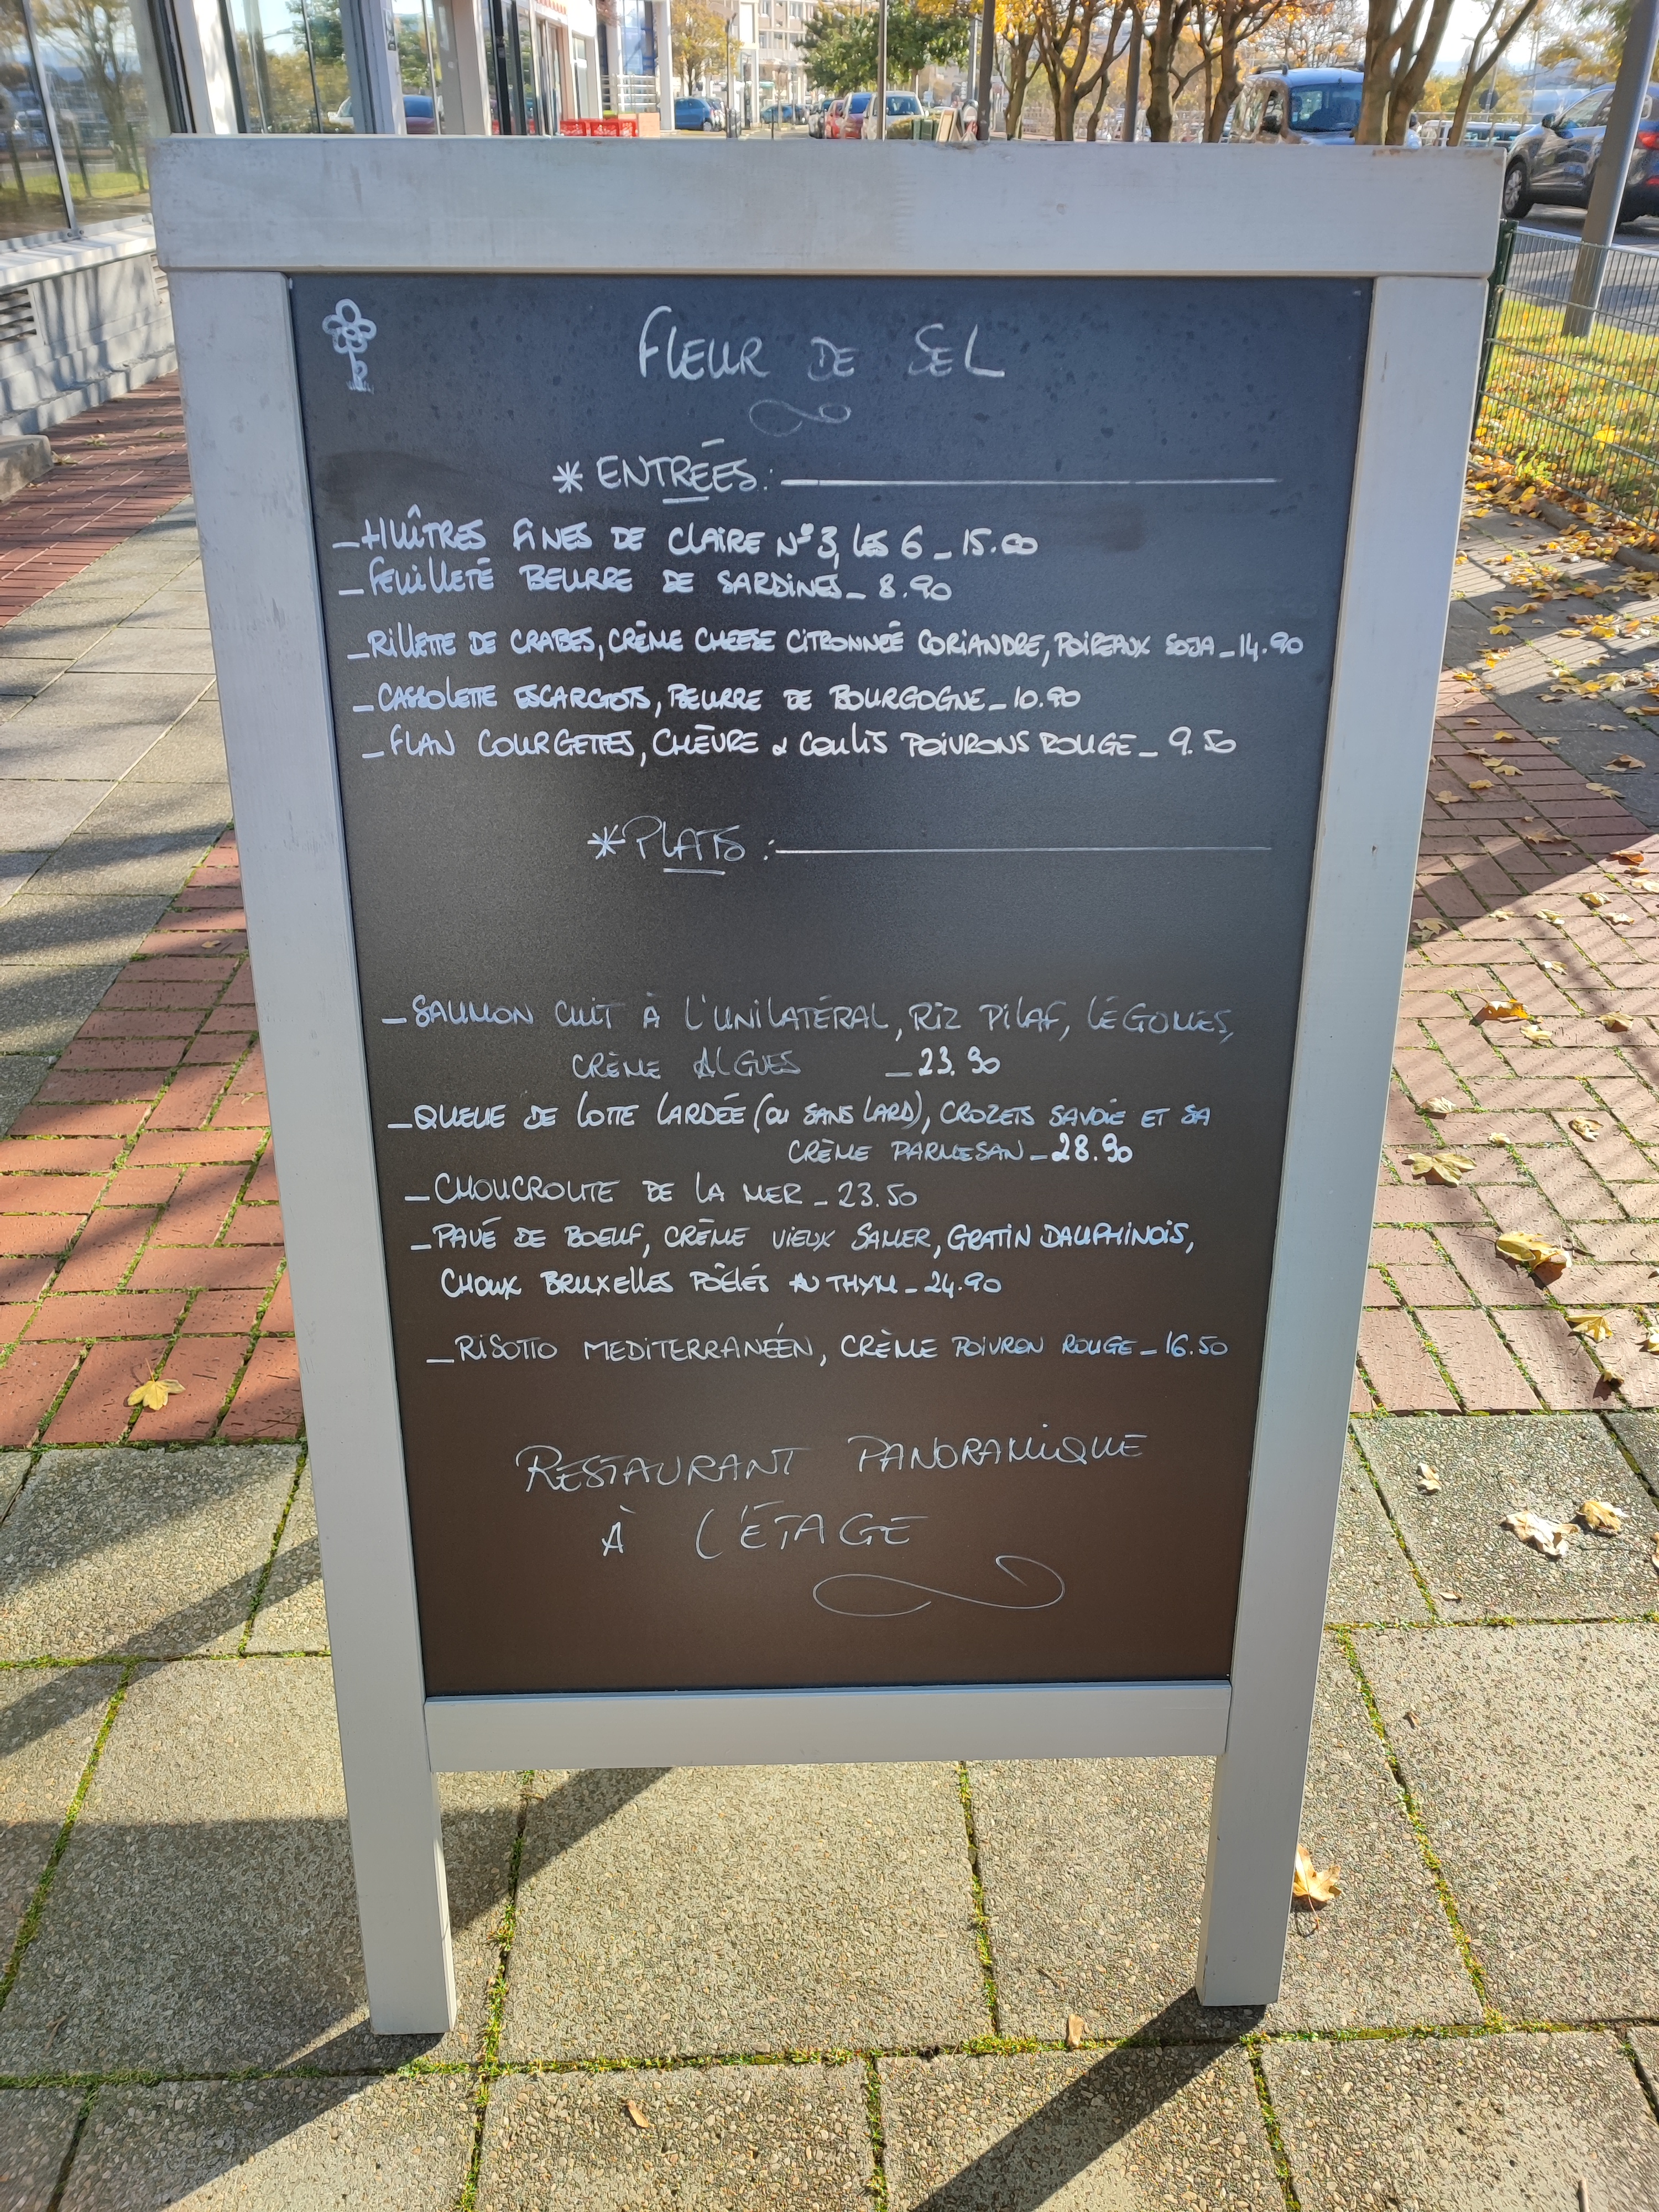 FLEUR DE SEL
* ENTRÉES :
_ HUÎTRES FINES DE CLAIRE N° 3, LES 6 _ 15.00
_ FEUILLETÉ BEURRE DE SARDINES _ 8.90
_ RILLETTE DE CRABES, CRÈME CHEESE CITRONNÉE CORIANDRE, POIREAUX SOJA _ 14.90
_ CASSOLETTE ESCARGOTS, BEURRE DE BOURGOGNE _ 10.90
_ FLAN COURGETTES, CHÈVRE & COULIS POIVRONS ROUGE _ 9.50
* PLATS :
_ SAUMON CUIT À L'UNILATÉRAL, RIZ PILAF, LÉGUMES,
CRÈME ALGUES _ 23.90
_ QUEUE DE LOTTE LARDÉE (OU SANS LARD), CROZETS SAVOIE ET SA
CRÈME PARMESAN _ 28.90
_ CHOUCROUTE DE LA MER _ 23.50
_ PAVÉ DE BOEUF, CRÈME VIEUX SAMER, GRATIN DAUPHINOIS,
CHOUX BRUXELLES POÊLÉS AU THYM _ 24.90
_ RISOTTO MEDITERRANÉEN, CRÈME POIVRON ROUGE _ 16.50
RESTAURANT PANORAMIQUE
À L'ÉTAGE